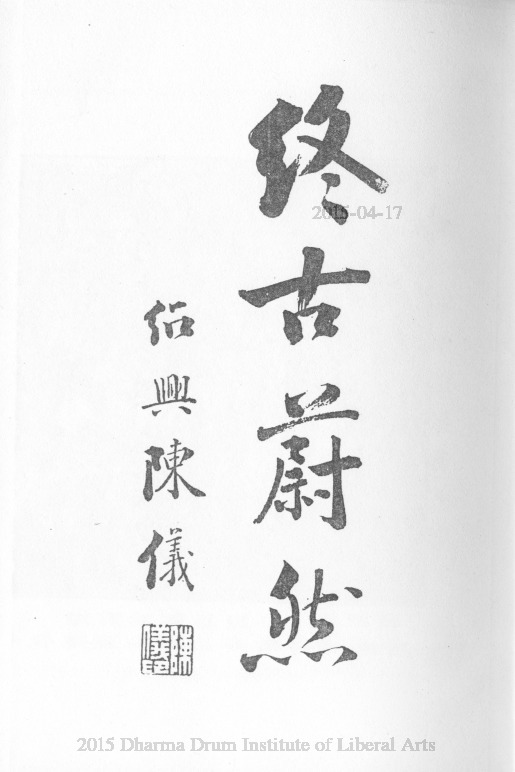 終古蔚然
紹興陳儀
陳儀印
2015-04-17
2015 Dharma Drum Institute of Liberal Arts